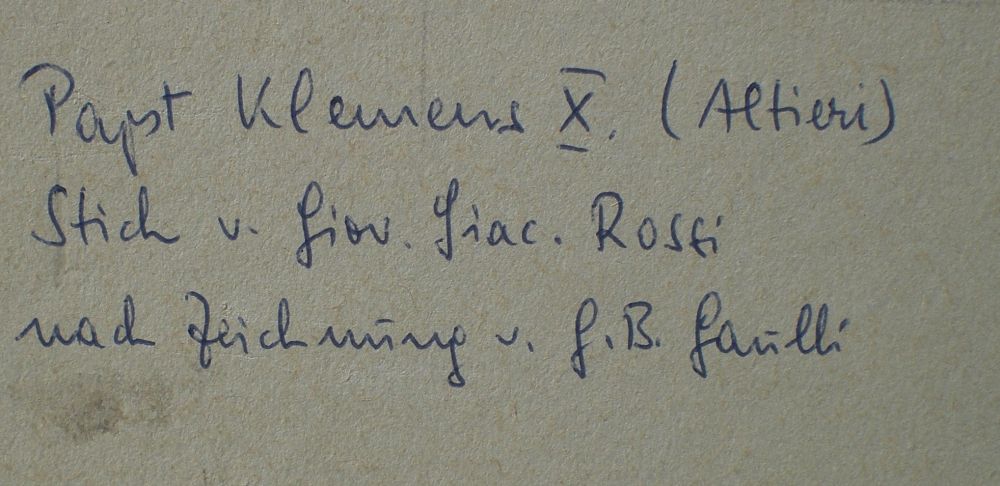 Papst Klemens X. (Altieri)
Stich v. Giov. Giac. Rossi
nach Zeichnung v. G. B. Gaulli